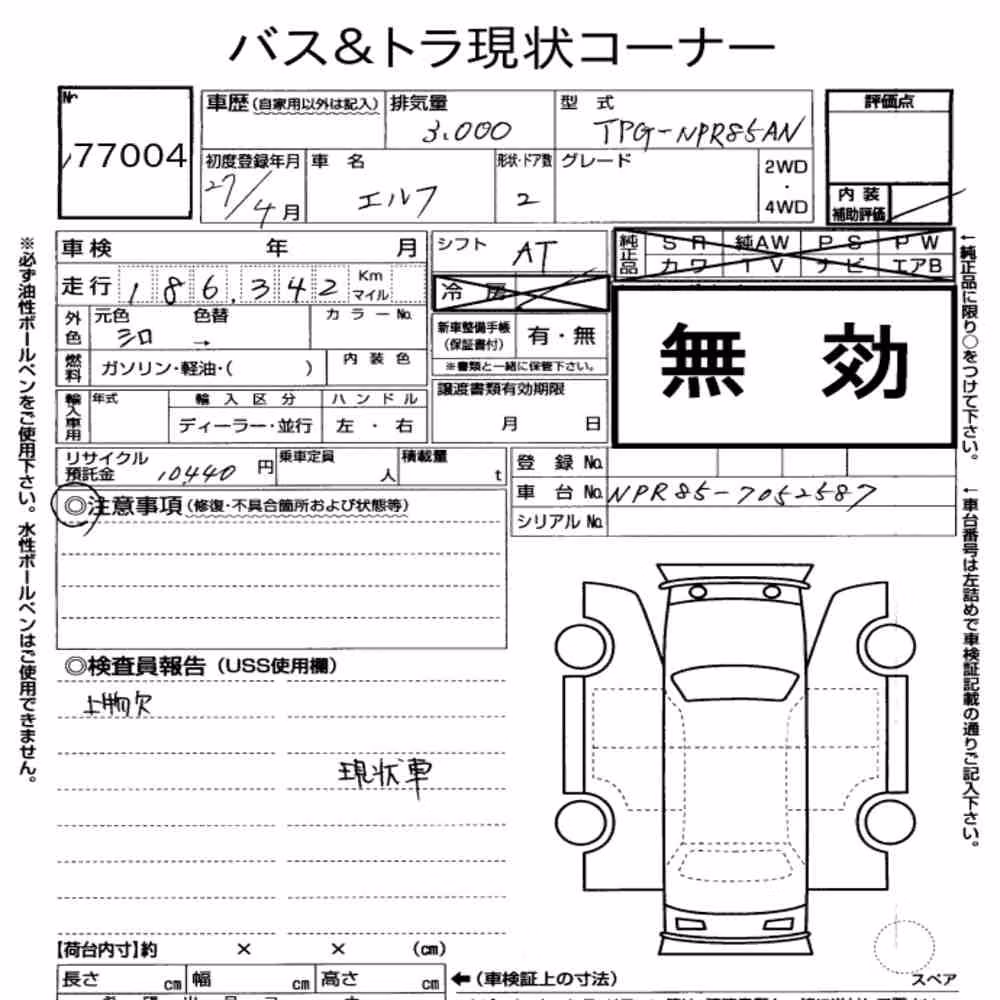 バス&トラ現状コーナー
№ 77004
車歴(自家用以外は記入) 排気量 3.000 型式 TPG-NPR85AN
初度登録年月 27/4月 車名 エルフ 形状・ドア数 2 グレード 2WD・4WD
評価点
内装補助評価
車検 年 月
シフト AT
純正品 SR 純AW PS PW
カワ TV ナビ エアB
走行 186,342 Km マイル
冷房
無効
外色 元色 シロ 色替 → カラーNo.
新車整備手帳(保証書付) 有・無
※書類と一緒に保管下さい。
燃料 ガソリン・軽油・( ) 内装色
譲渡書類有効期限 月 日
輸入車用 年式 輸入区分 ハンドル
ディーラー・並行 左・右
リサイクル預託金 10,440円 乗車定員 人 積載量 t
登録No.
車台No. NPR85-7052587
シリアルNo.
◎注意事項(修復・不具合箇所および状態等)
◎検査員報告(USS使用欄)
上物欠
現状車
【荷台内寸】約 × × (cm)
長さ cm 幅 cm 高さ cm ←(車検証上の寸法)
スペア
※必ず油性ボールペンをご使用下さい。水性ボールペンはご使用できません。
←純正品に限り○をつけて下さい。
←車台番号は左詰めで車検証記載の通りご記入下さい。